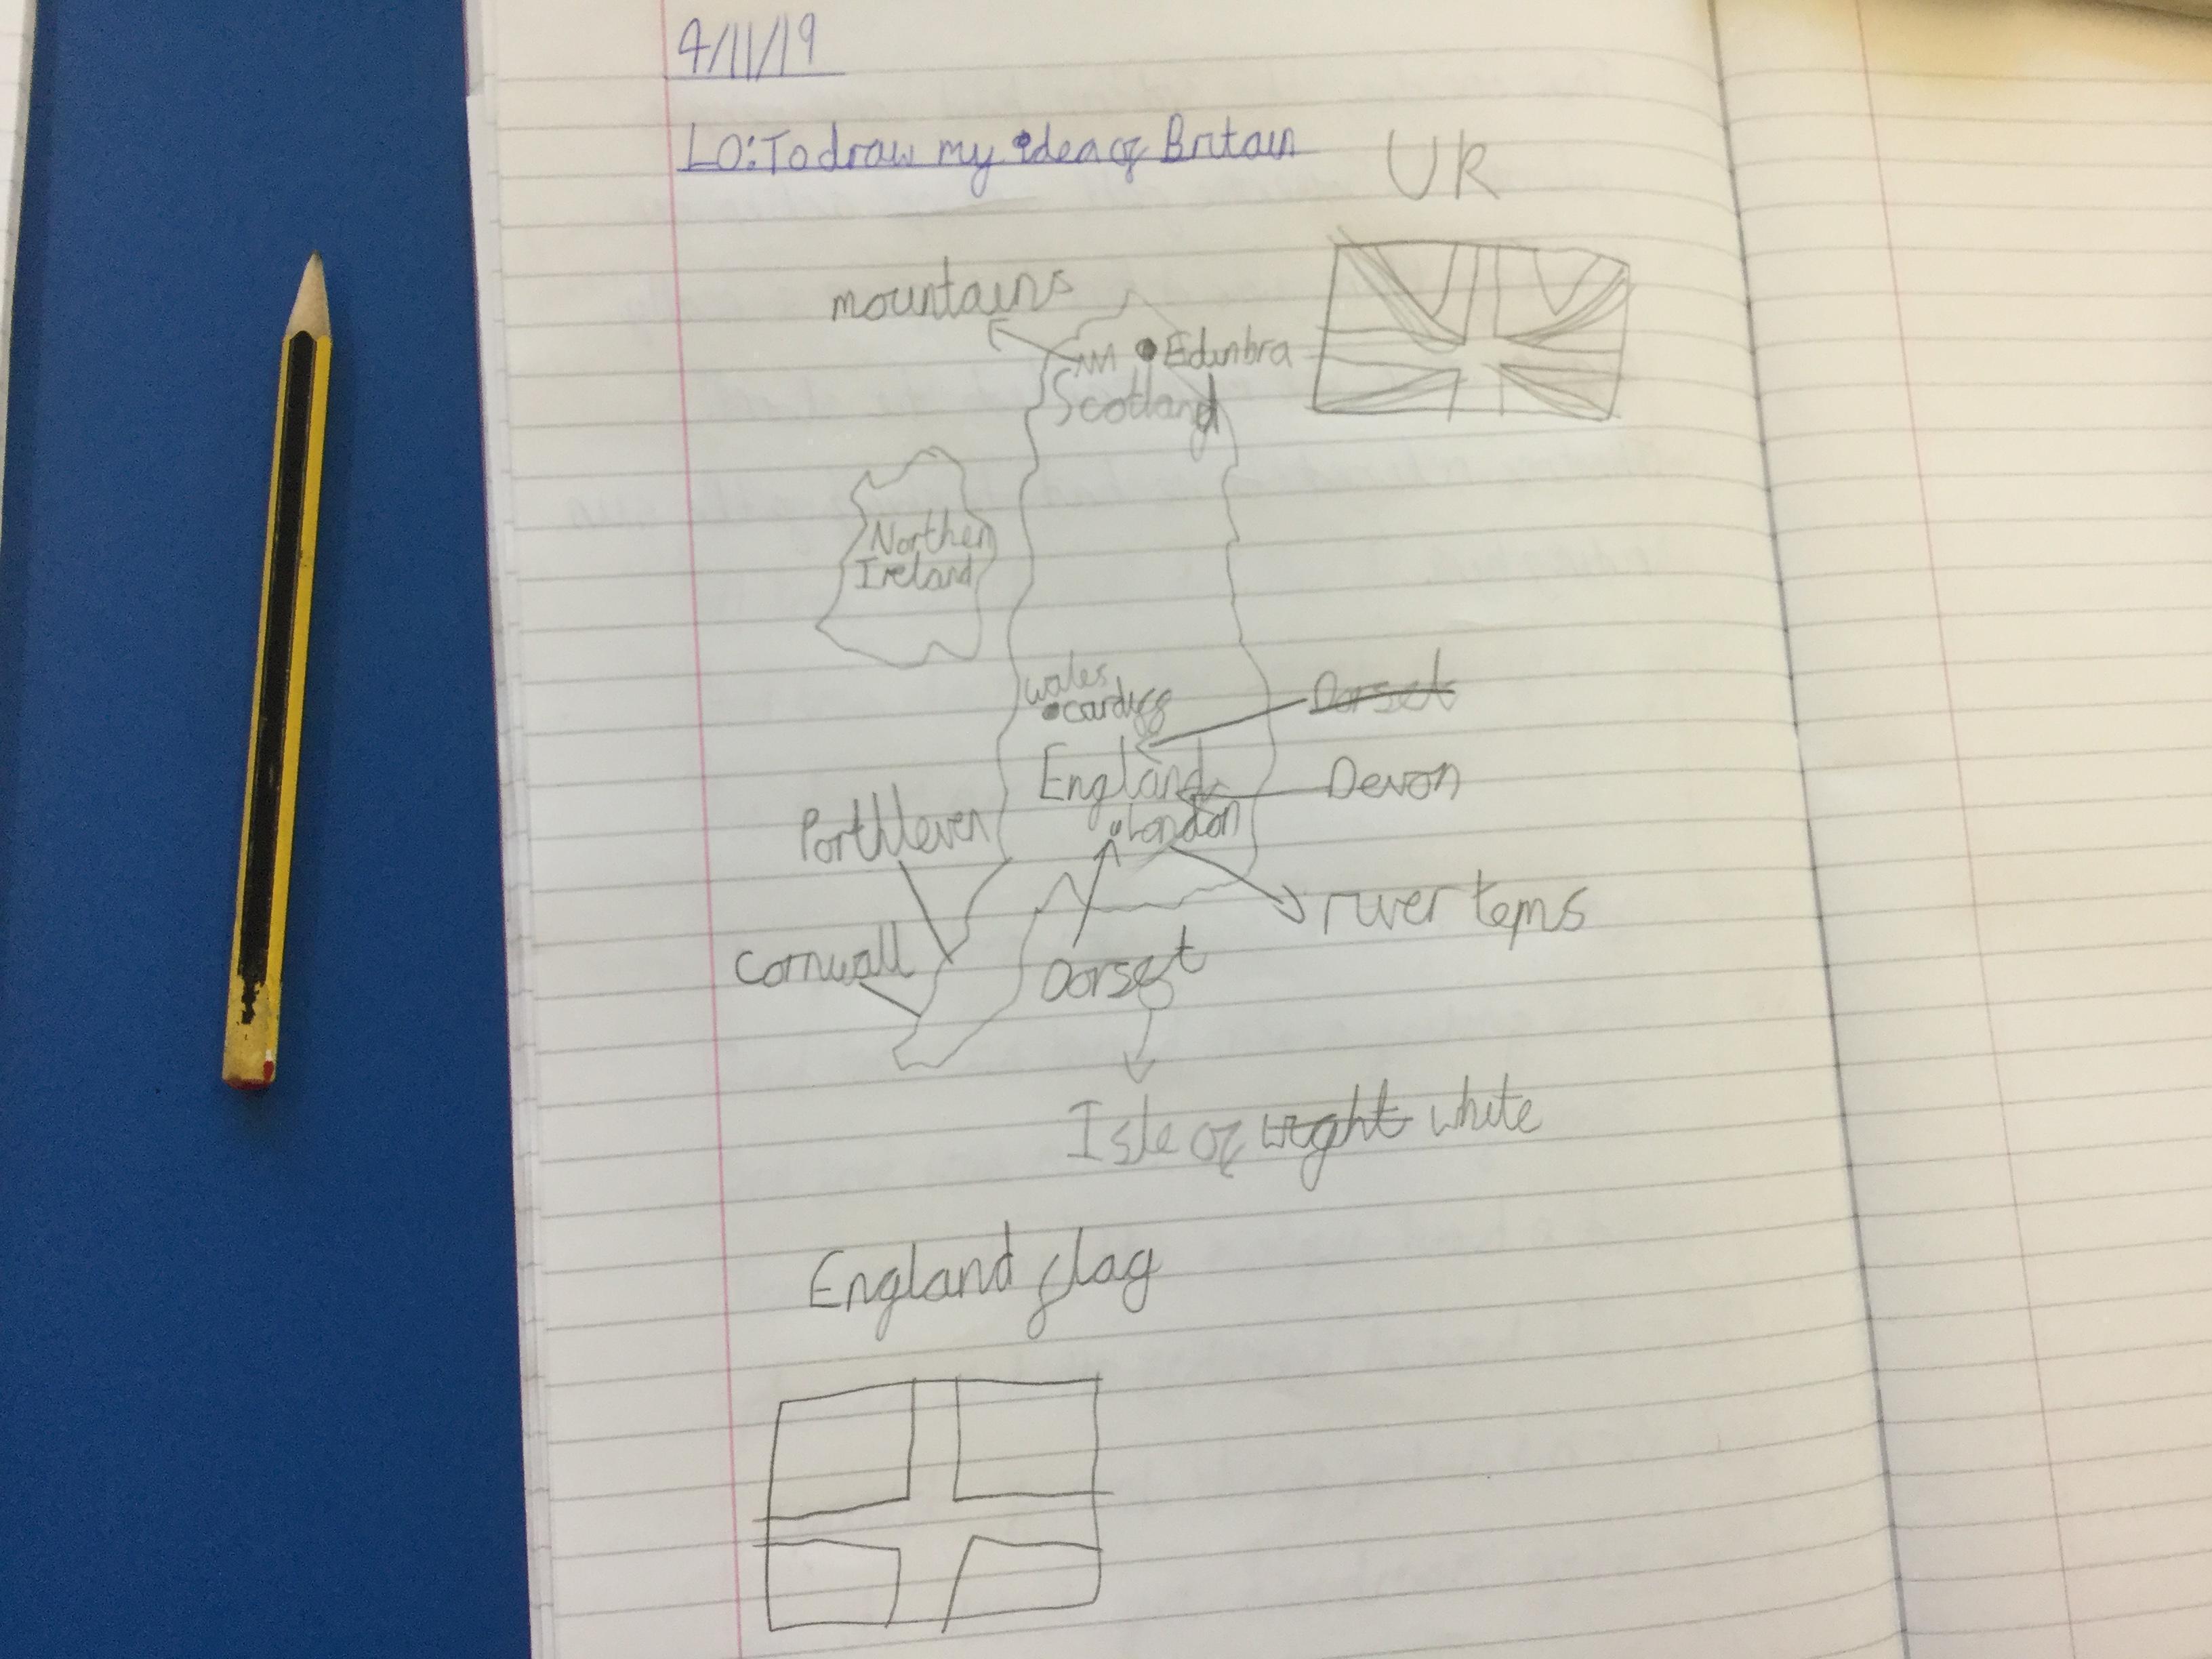 4/11/19
LO: To draw my idea of Britain
UK
mountains
Edinbra
Scotland
Northen
Ireland
wales
cardiff
Dorset
England
Devon
London
Porthleven
river tems
Cornwall
Dorset
Isle of wight white
England flag